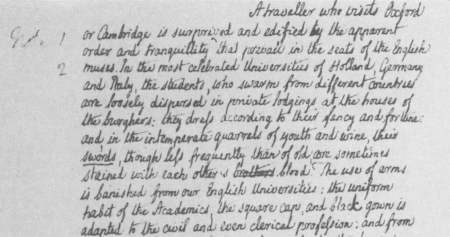 A traveller who visits Oxford
1 or Cambridge is surprised and edified by the apparent
order and tranquillity that prevail in the seats of the English
2 muses. In the most celebrated Universities of Holland, Germany
and Italy, the students, who swarm from different countries
are loosely dispersed in private lodgings at the houses of
the burghers: they dress according to their fancy and fortune:
and in the intemperate quarrels of youth and wine, their
swords, though less frequently than of old are sometimes
stained with each other's blood. The use of arms
is banished from our English Universities: the uniform
habit of the Academics, the square cap, and black gown is
adapted to the civil and even clerical profession: and from